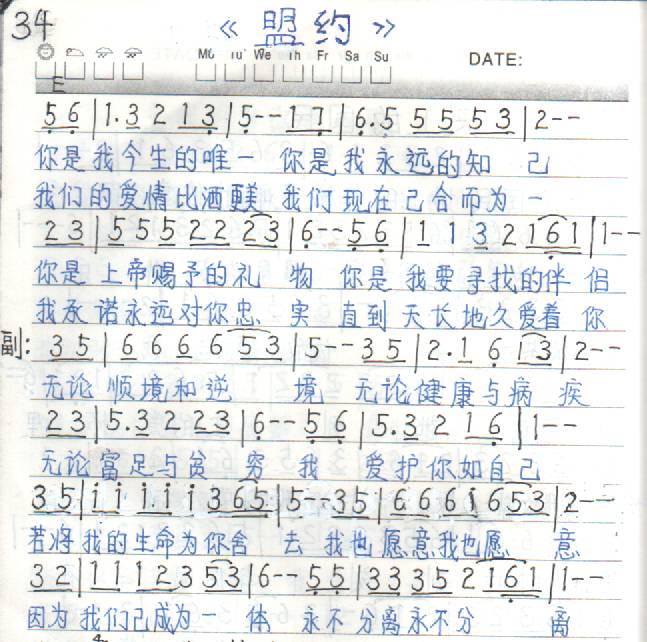 34 《盟约》
Mo Tu We Th Fr Sa Su DATE:
E
5 6 | 1. 3 2 1 3 | 5 - - 1 7 | 6. 5 5 5 5 3 | 2 - -
你是我今生的唯一 你是我永远的知己
我们的爱情比酒更美 我们现在已合而为一
2 3 | 5 5 5 2 2 2 3 | 6 - - 5 6 | 1 1 3 2 1 6 1 | 1 - -
你是上帝赐予的礼物 你是我要寻找的伴侣
我承诺永远对你忠实 直到天长地久爱着你
副: 3 5 | 6 6 6 6 5 3 | 5 - - 3 5 | 2. 1 6 1 3 | 2 - -
无论顺境和逆境 无论健康与病疾
2 3 | 5. 3 2 2 3 | 6 - - 5 6 | 5. 3 2 1 6 | 1 - -
无论富足与贫穷 我爱护你如自己
3 5 | i i i. i i 3 6 5 | 5 - - 3 5 | 6 6 6 i 6 5 3 | 2 - -
若将我的生命为你舍去 我也愿意我也愿意
3 2 | 1 1 1 2 3 5 3 | 6 - - 5 5 | 3 3 3 5 2 1 6 1 | 1 - -
因为我们已成为一体 永不分离永不分离